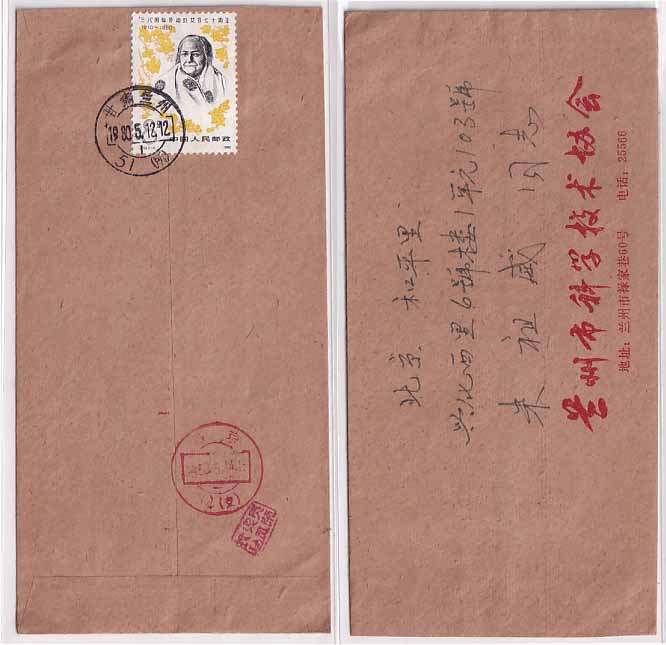 三八国际劳动妇女节七十周年
1910-1980
中国人民邮政
甘肃兰州
1980.5.12.12
51(支)
北京
北京 和平里
兴化西里6號楼1单元103號
朱祖威 同志
兰州市科学技术协会
地址：兰州市禄家巷60号 电话：25566